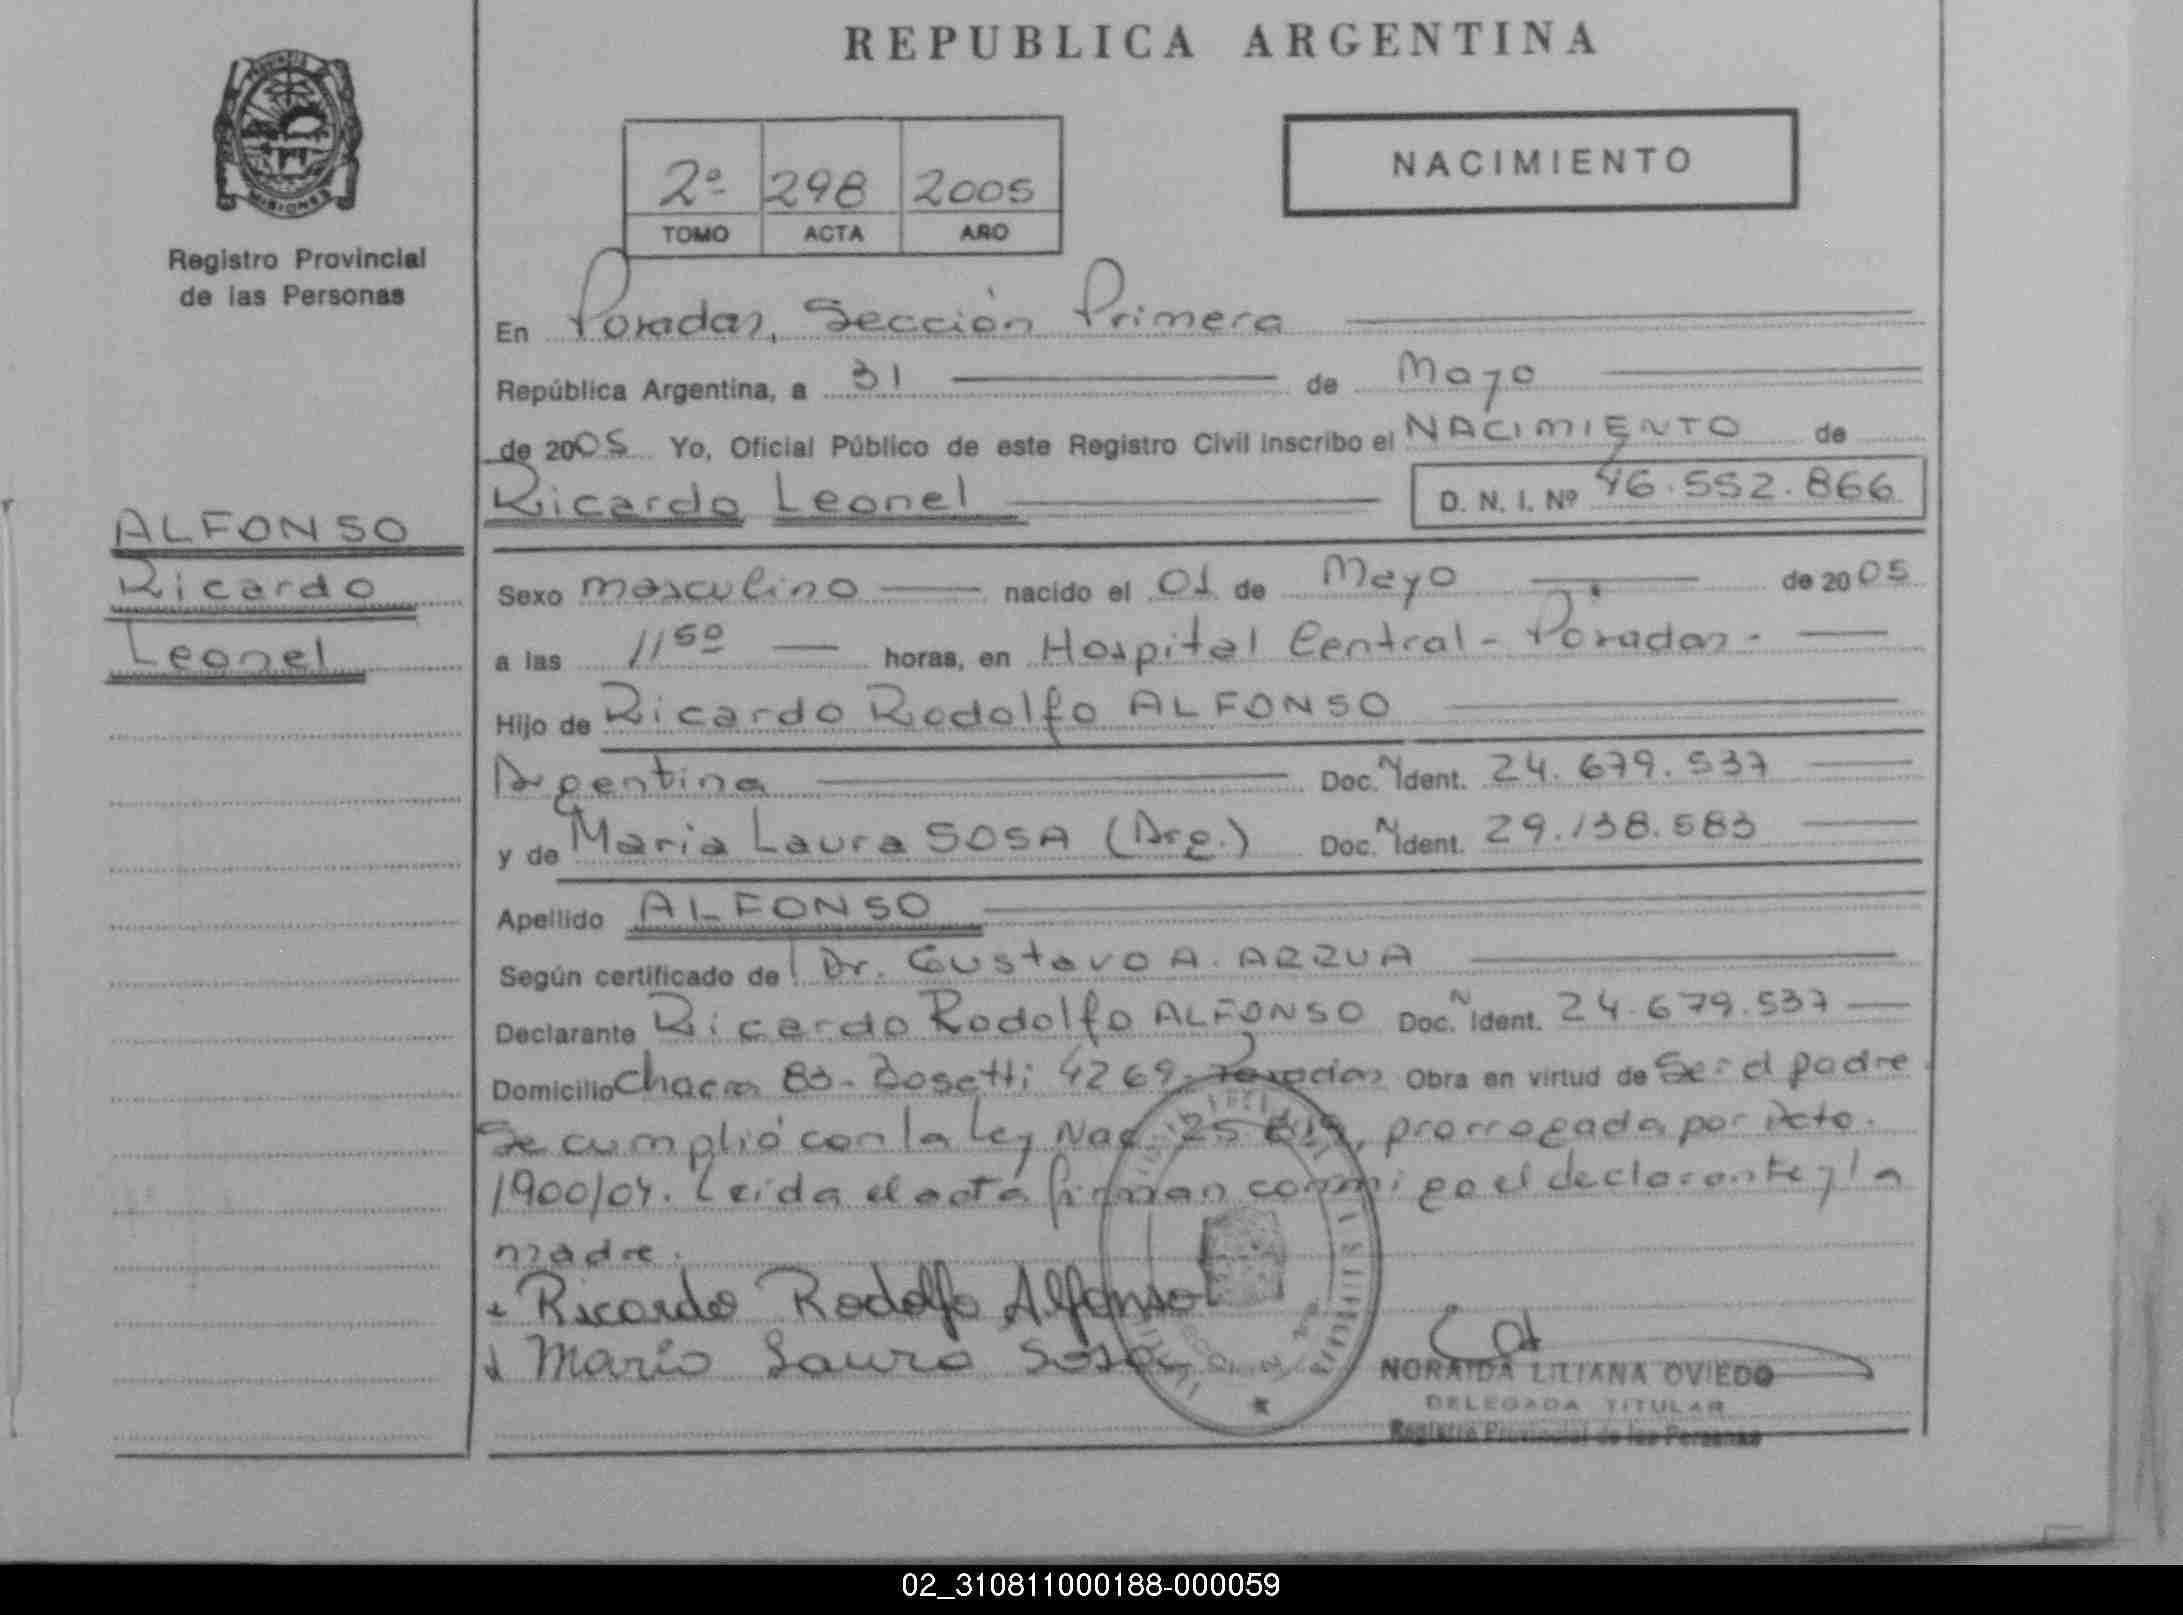 REPUBLICA ARGENTINA
PROVINCIA
MISIONES
Registro Provincial
de las Personas
2º 298 2005
TOMO ACTA AÑO
NACIMIENTO
En Posadas, Sección Primera
República Argentina, a 31 de Mayo
de 2005 Yo, Oficial Público de este Registro Civil inscribo el NACIMIENTO de
Ricardo Leonel D. N. I. Nº 46.552.866
ALFONSO
Ricardo
Leonel
Sexo masculino nacido el 01 de Mayo de 2005
a las 11 50 horas, en Hospital Central - Posadas -
Hijo de Ricardo Rodolfo ALFONSO
Argentina Doc. N Ident. 24.679.537
y de Maria Laura SOSA (Arg.) Doc. N Ident. 29.138.583
Apellido ALFONSO
Según certificado de Dr. Gustavo A. ARZUA
Declarante Ricardo Rodolfo ALFONSO Doc. N Ident. 24.679.537
Domicilio Chacra 83 - 4269 - Posadas Obra en virtud de Ser el padre
Se cumplió con la Ley Nac. 25 , prorrogada por Dcto.
1900/04. Leida el acta firman conmigo el declarante y la
madre.
Ricardo Rodolfo Alfonso
Maria Laura Sosa
NORAIDA LILIANA OVIEDO
DELEGADA TITULAR
Registro Provincial de las Personas
02_310811000188-000059